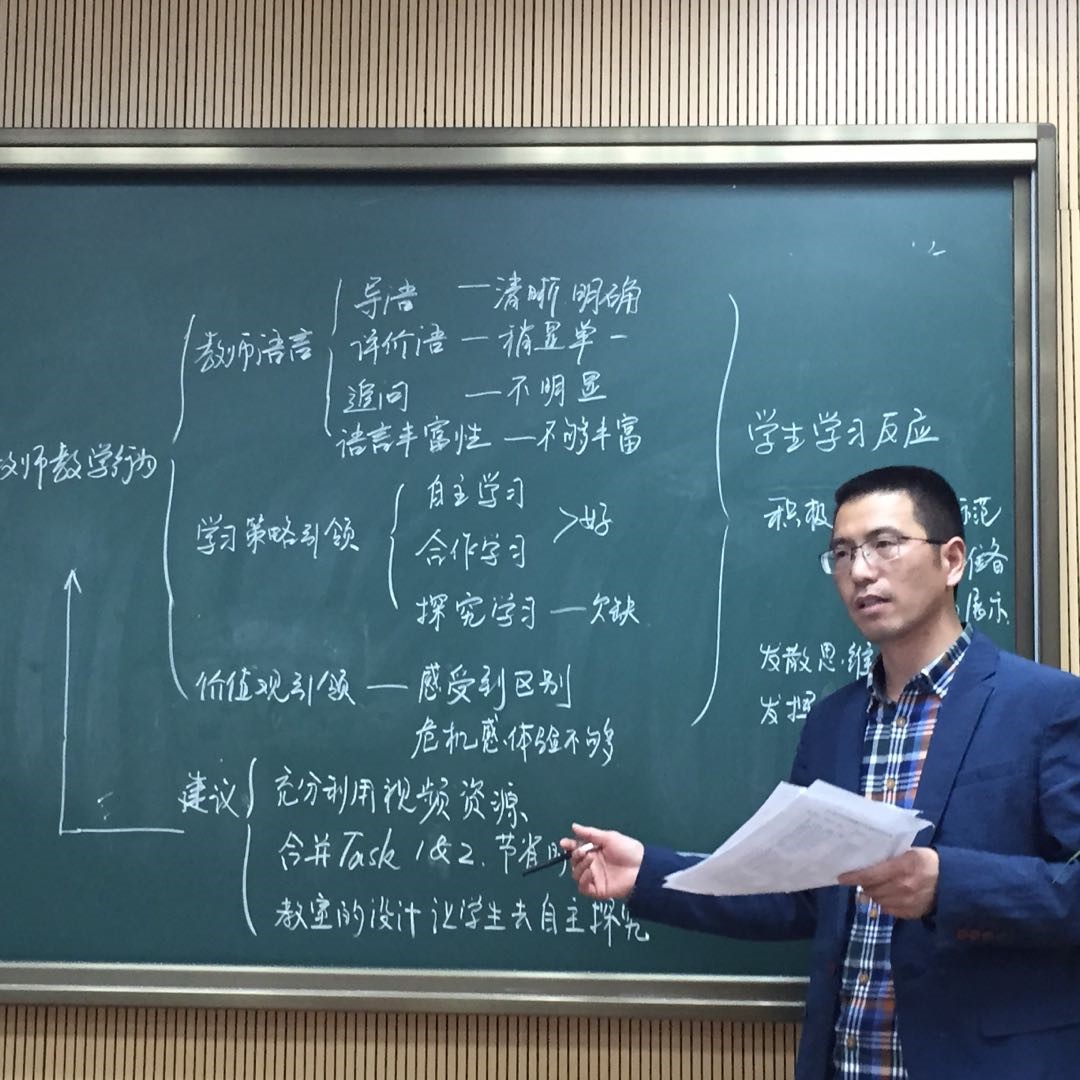 导语 — 清晰 明确
教师语言 评价语 — 稍显单一
追问 — 不明显
语言丰富性 — 不够丰富
师教学行为
自主学习
学习策略引领 合作学习 > 好
探究学习 — 欠缺
价值观引领 — 感受到区别
危机感·体验不够
建议 充分利用视频资源
合并Task 1&2. 节省时
教室的设计 让学生去自主探究
学生学习反应
积极 范
备
展示
发散思维
发挥